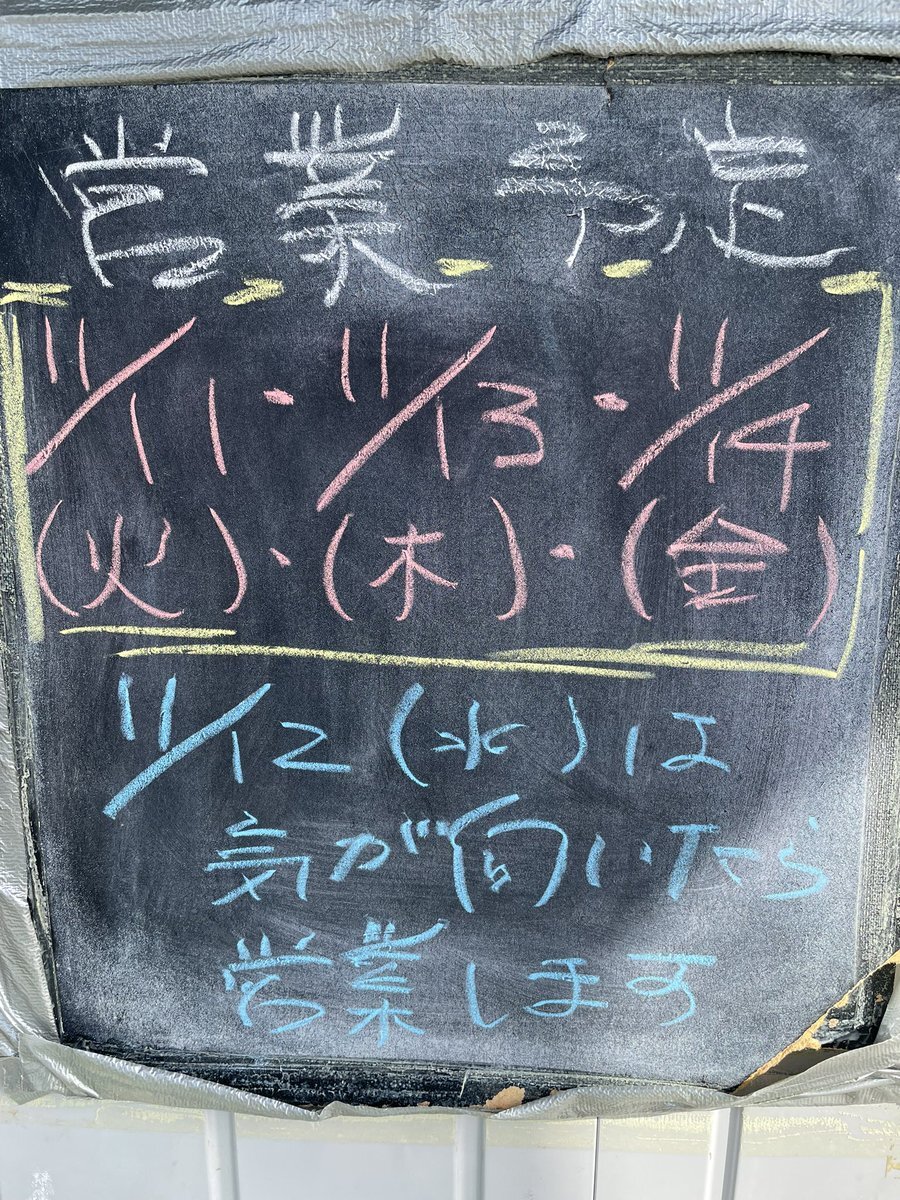 営業予定
11/11・11/13・11/14
(火)・(木)・(金)
11/12(水)は
気が向いたら
営業します